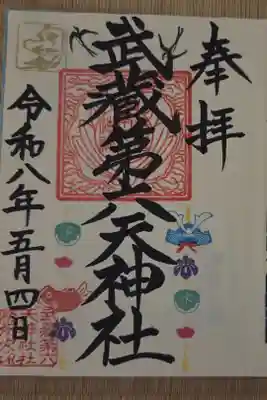 奉拝
武蔵第六天神社
令和八年五月四日